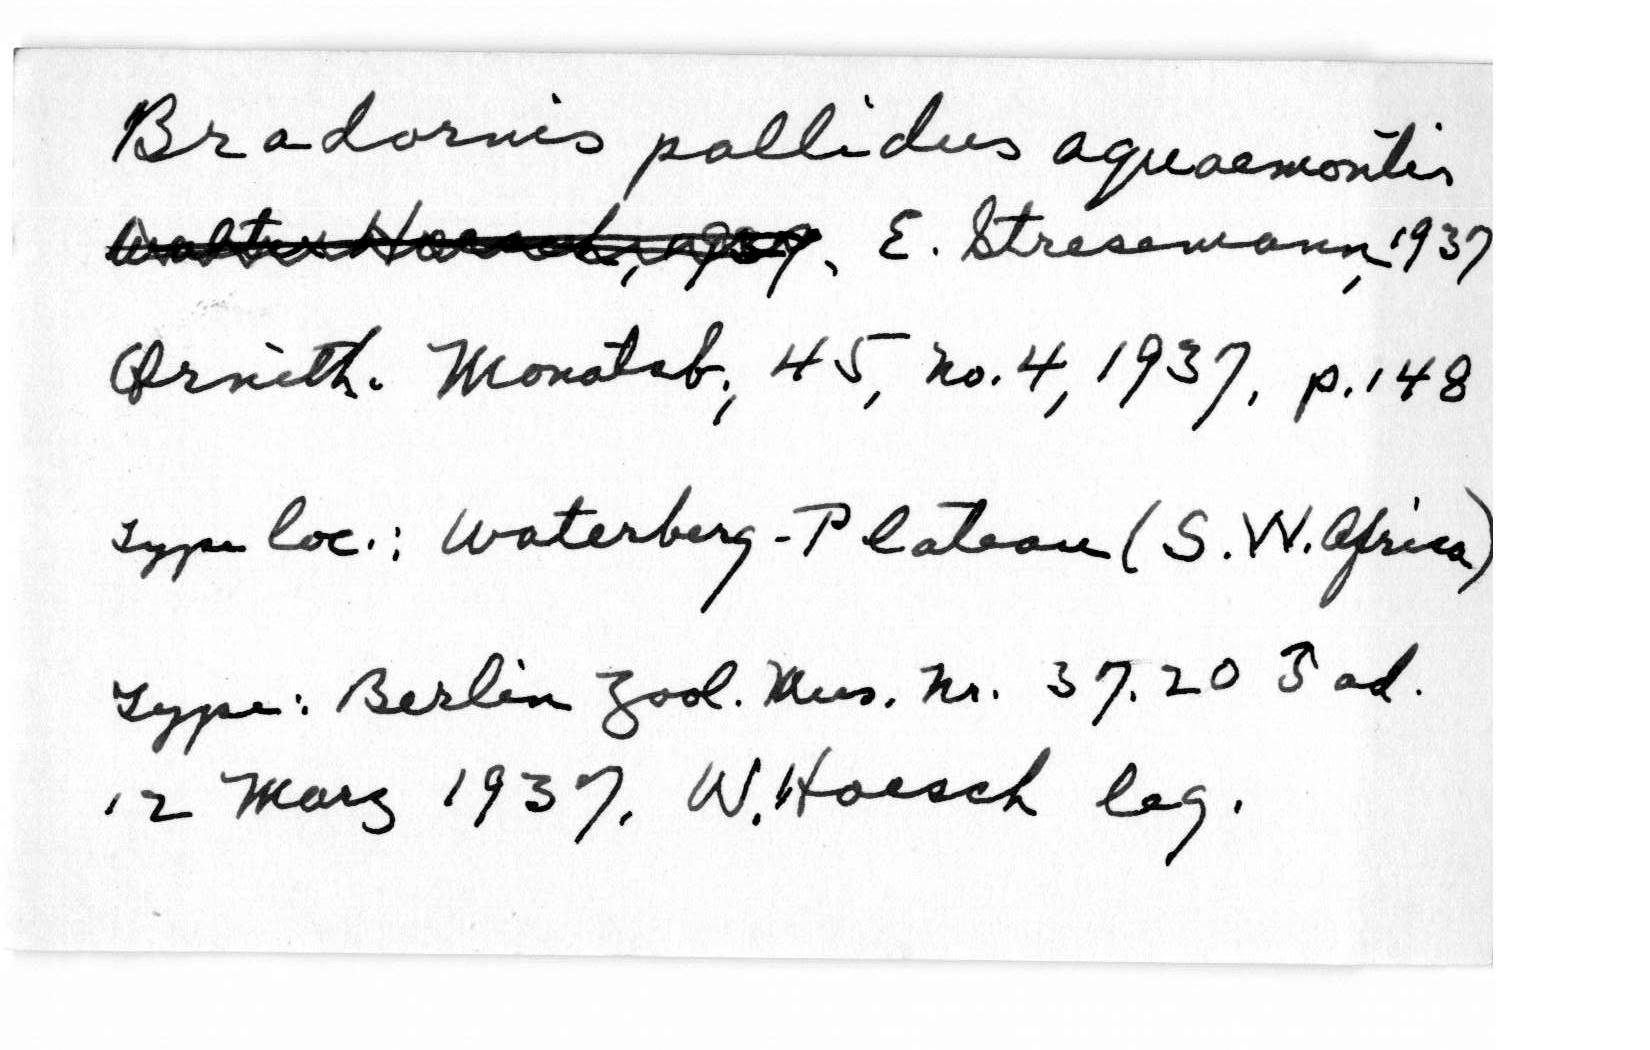 Bradornis pallidus aquaemontis
Walter Hoesch, 1937, E. Stresemann, 1937
Ornith. Monatsb, 45, no. 4, 1937, p. 148
Type loc.: Waterberg-Plateau (S.W. Africa)
Type: Berlin Zool. Mus. Nr. 37.20 ♂ ad.
12 Marz 1937, W. Hoesch leg.